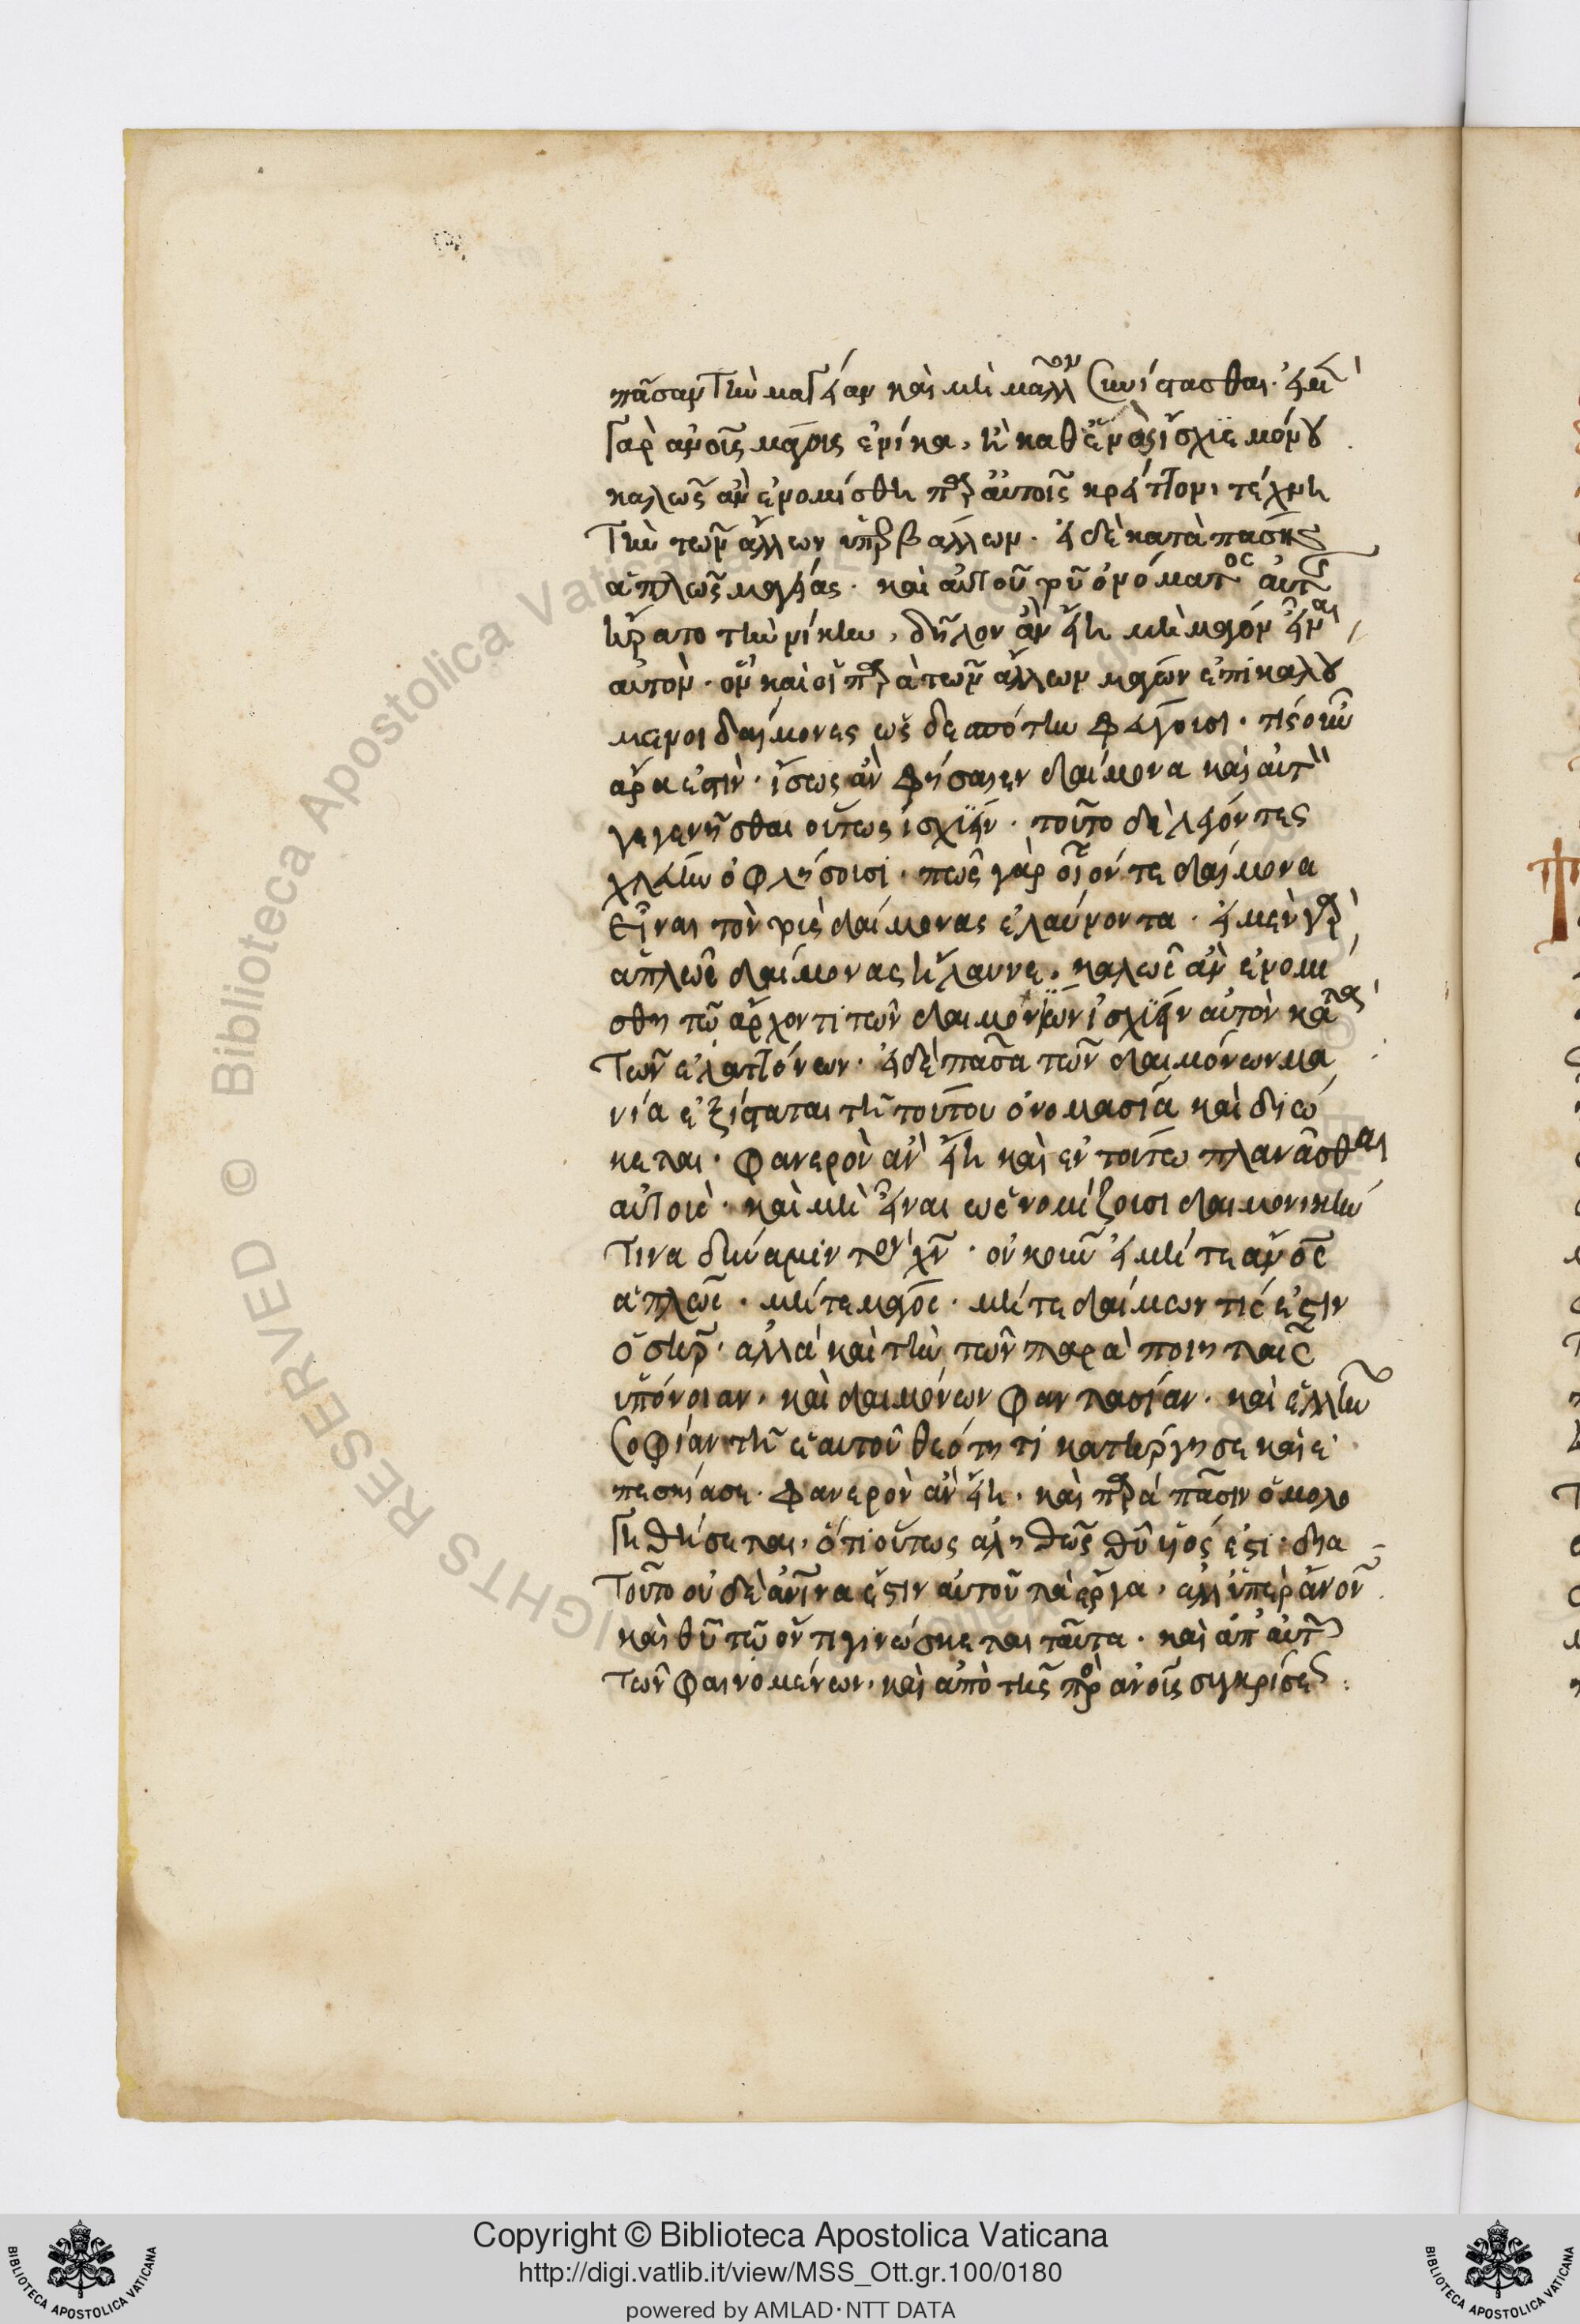 πᾶσαν τὴν μαγείαν καὶ μὴ μᾶλλον συνίστασθαι· εἰ μὲν
γὰρ ἀνοῖς μάγοις ἐνίκα, ἢ καθ' ἑνὸς ἴσχυε μόνου
καλῶς ἂν ἐνομίσθη παρ' αὐτοῖς κρείττονι τέχνη
τὴν τῶν ἄλλων ὑπερβάλλων· εἰ δὲ κατὰ πάσης
ἁπλῶς μαγείας· καὶ αὐτοῦ τοῦ ὀνόματος αὐτῆς
ἤρατο τὴν νίκην, δῆλον ἂν εἴη μὴ μάγον εἶναι
αὐτὸν· ὃν καὶ οἱ παρὰ τῶν ἄλλων μάγων ἐπικαλού
μενοι δαίμονες ὡς δεσπότην φεύγουσι· τίς οὖν
ἄρα ἐστὶν· ἴσως ἂν φήσαιεν δαίμονα καὶ αὐτὸν
γεγενῆσθαι οὕτως ἰσχύειν· τοῦτο δὲ λέγοντες
χλεύην ὀφλήσουσι· πῶς γὰρ οἷόν τε δαίμονα
εἶναι τὸν τοὺς δαίμονας ἐλαύνοντα· εἰ μὲν γὰρ
ἁπλῶς δαίμονας ἤλαυνε, καλῶς ἂν ἐνομί
σθη τῷ ἄρχοντι τῶν δαιμονίων ἰσχύειν αὐτὸν κατὰ
τῶν ἐλαττόνων· εἰ δὲ πᾶσα τῶν δαιμόνων μα
νία ἐξίσταται τῇ τούτου ὀνομασίᾳ καὶ διώ
κεται· φανερὸν ἂν εἴη καὶ ἐν τούτῳ πλανᾶσθαι
αὐτοὺς· καὶ μὴ εἶναι ὡς νομίζουσι δαιμονικήν
τινα δύναμιν τὸν χν· οὐκοῦν εἰ μήτε ανος
ἁπλῶς· μήτε μάγος· μήτε δαίμων τίς ἐστιν
ὁ σηρ· ἀλλὰ καὶ τὴν τῶν παρὰ ποιηταῖς
ὑπόνοιαν, καὶ δαιμόνων φαντασίαν· καὶ ἑλλήνων
σοφίαν τῇ ἑαυτοῦ θεότητι κατήργησε καὶ ἐ
πεσκίασε· φανερὸν ἂν εἴη, καὶ παρὰ πᾶσιν ὁμολο
γηθήσεται, ὅτι οὗτος ἀληθῶς θυ υἱός ἐστι· διὰ
τοῦτο οὐδὲ ἀνινα ἐστιν αὐτοῦ τὰ ἔργα, ἀλλ' ὑπὲρ ανον
καὶ θυ τῷ ὄντι γινώσκεται ταῦτα· καὶ ἀπ' αὐτῶν
τῶν φαινομένων, καὶ ἀπὸ τῆς πρὸς ανοῖς συγκρίσεως:
Copyright © Biblioteca Apostolica Vaticana
http://digi.vatlib.it/view/MSS_Ott.gr.100/0180
powered by AMLAD·NTT DATA
© Biblioteca Apostolica Vaticana
RIGHTS RESERVED
BIBLIOTECA APOSTOLICA VATICANA
BIBLIOTECA APOSTOLICA VATICANA